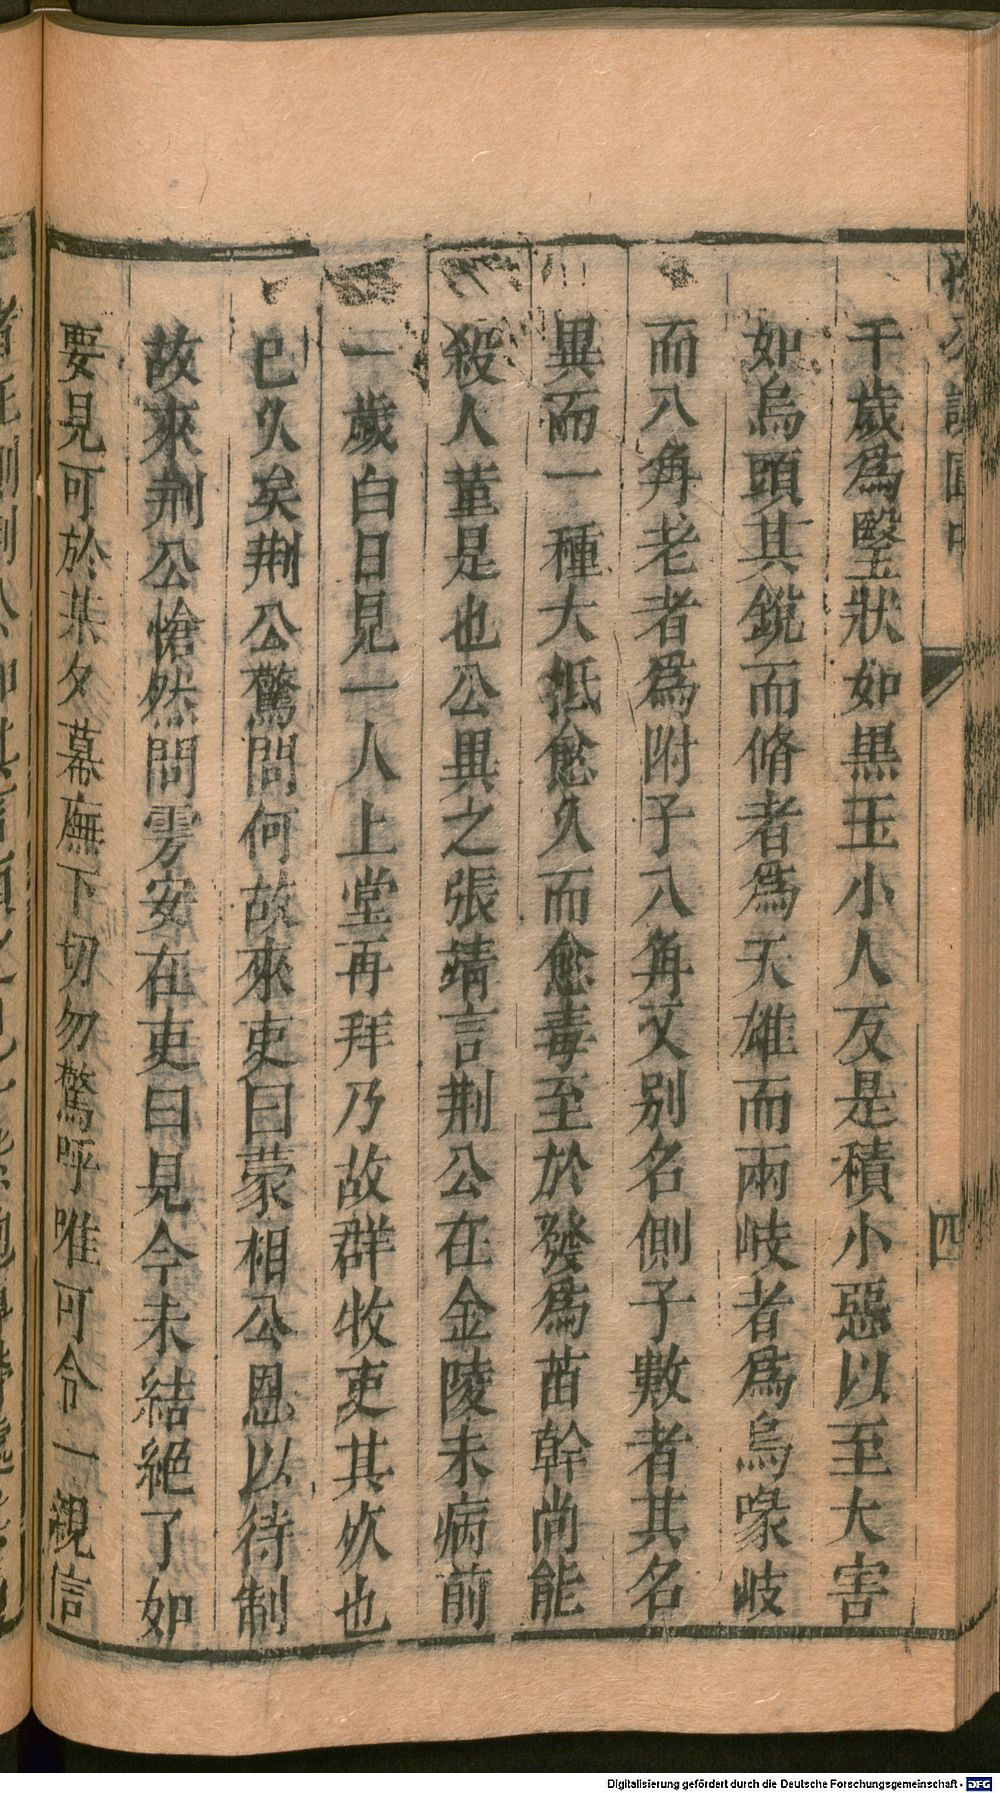 千歲爲瑿狀如黒玉小人友是積小惡以至大害
如烏頭其銳而脩者爲天雄而兩岐者爲烏喙岐
而八角老者爲附子八角又别名側子數者其名
異而一種大抵愈久而愈毒至於發爲苗幹尚能
殺人堇是也公異之張靖言荆公在金陵未病前
一歲白日見一人上堂再拜乃故群牧吏其死也
已久矣荆公驚問何故來吏曰蒙相公恩以待制
故來荆公愴然問雱安在吏曰見今未結絕了如
要見可於某夕幕廡下切勿驚呼唯可令一親信
四
Digitalisierung gefördert durch die Deutsche Forschungsgemeinschaft - DFG